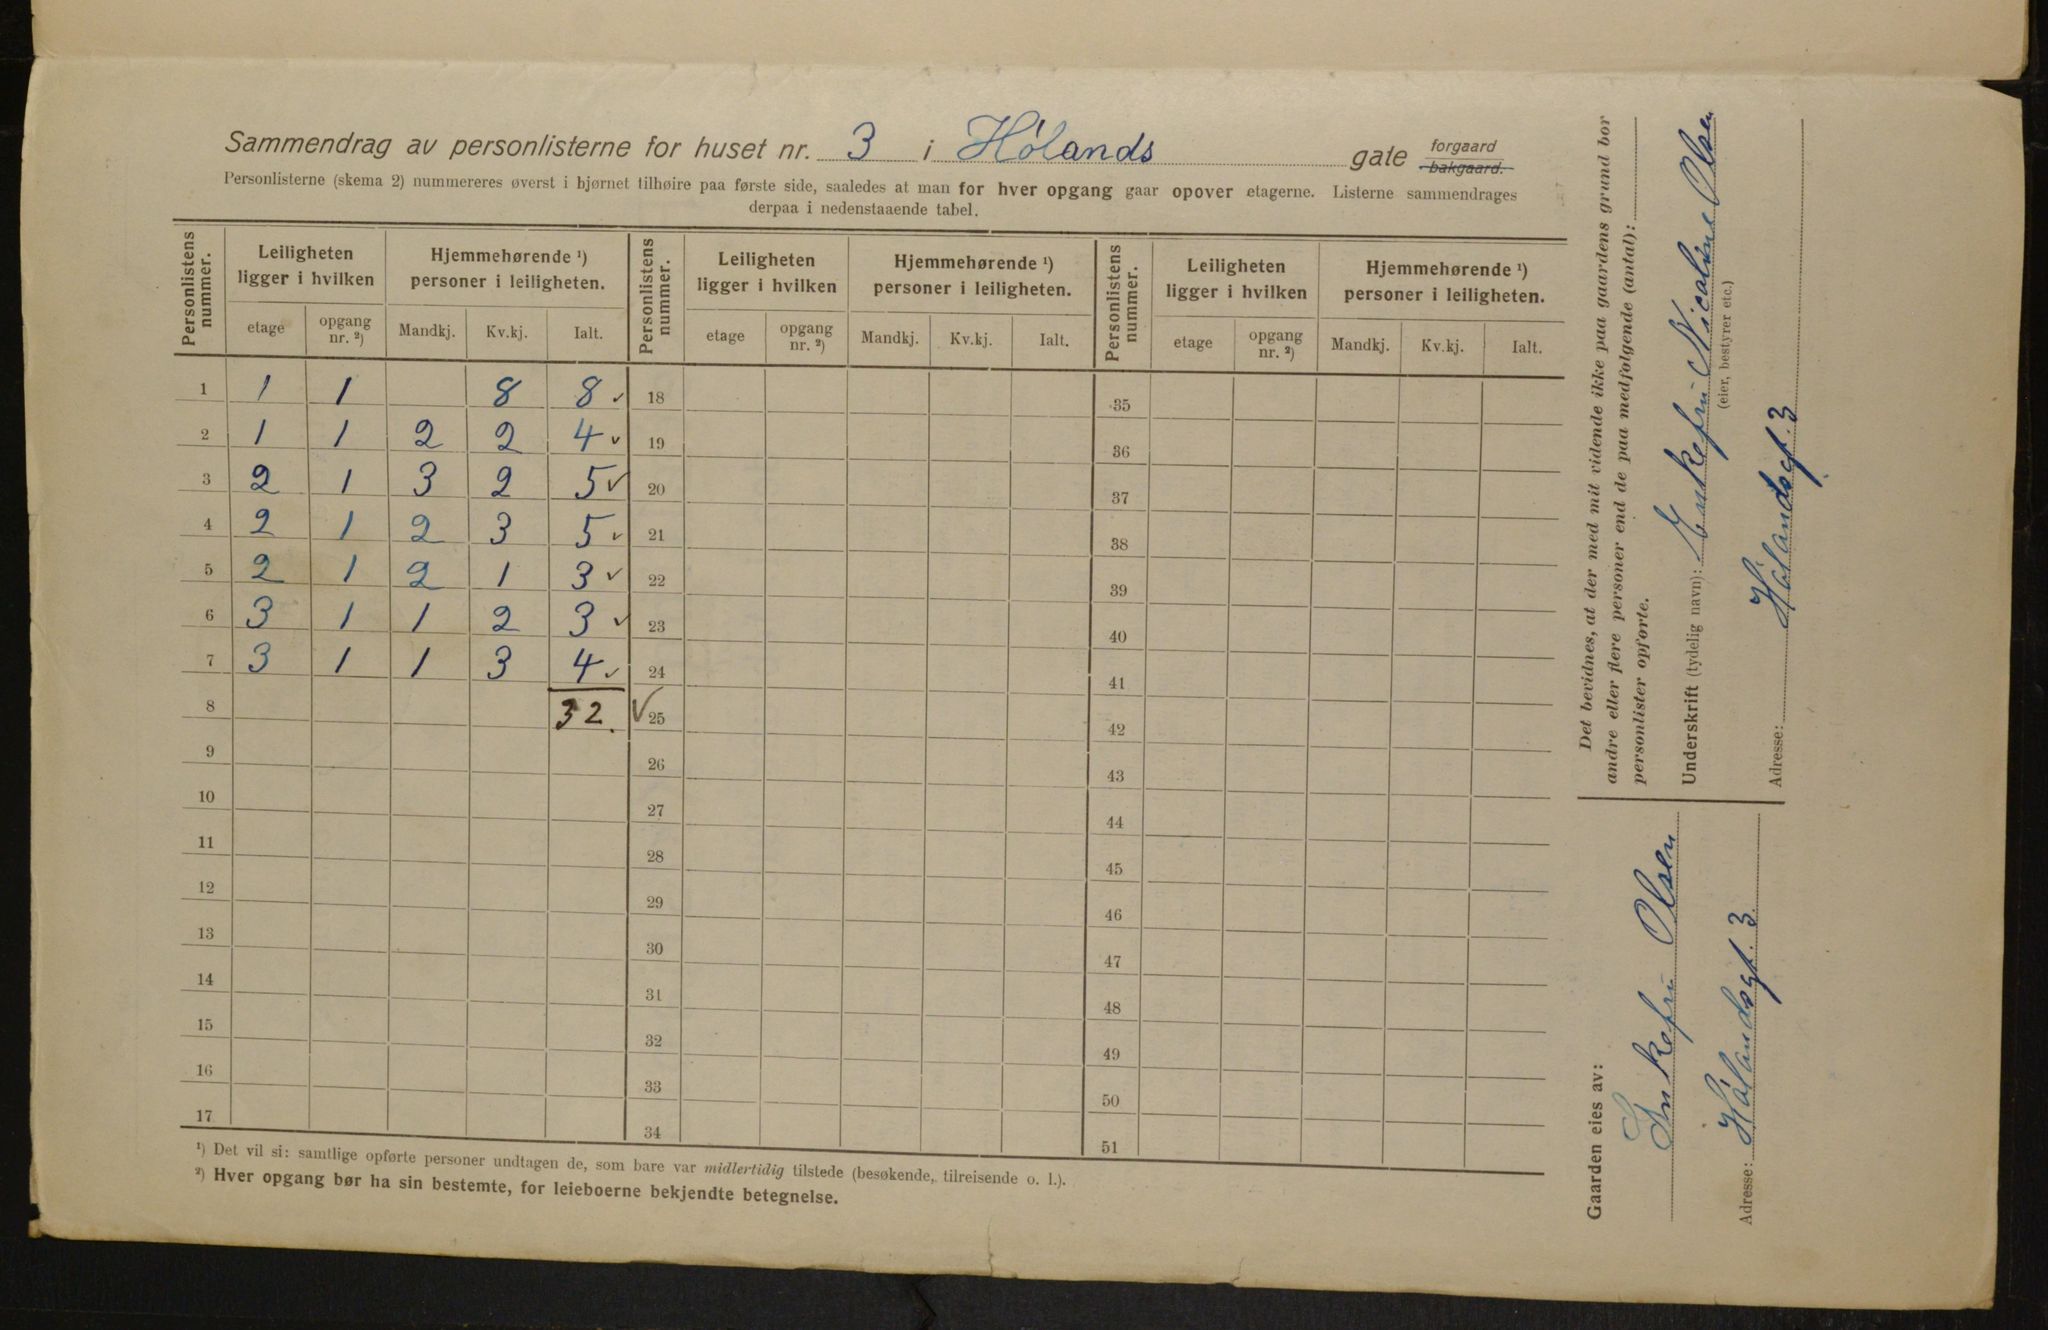 Sammendrag av personlisterne for huset nr. 3 i Hølands gate forgaard bakgaard.
Personlisterne (skema 2) nummereres øverst i bjørnet tilhøire paa første side, saaledes at man for hver opgang gaar opover etagerne. Listerne sammendrages
derpaa i nedenstaaende tabel.
Personlistens nummer. Leiligheten ligger i hvilken Hjemmehørende ¹) personer i leiligheten. Personlistens nummer. Leiligheten ligger i hvilken Hjemmehørende ¹) personer i leiligheten. Personlistens nummer. Leiligheten ligger i hvilken Hjemmehørende ¹) personer i leiligheten.
etage opgang nr. ²) Mandkj. Kv.kj. Ialt. etage opgang nr. ²) Mandkj. Kv.kj. Ialt. etage opgang nr. ²) Mandkj. Kv.kj. Ialt.
1 1 1 8 8 ✓ 18 35
2 1 1 2 2 4 ✓ 19 36
3 2 1 3 2 5 ✓ 20 37
4 2 1 2 3 5 ✓ 21 38
5 2 1 2 1 3 ✓ 22 39
6 3 1 1 2 3 ✓ 23 40
7 3 1 1 3 4 ✓ 24 41
8 32. ✓ 25 42
9 26 43
10 27 44
11 28 45
12 29 46
13 30 47
14 31 48
15 32 49
16 33 50
17 34 51
¹) Det vil si: samtlige opførte personer undtagen de, som bare var midlertidig tilstede (besøkende, tilreisende o. l.).
²) Hver opgang bør ha sin bestemte, for leieboerne bekjendte betegnelse.
Det bevidnes, at der med mit vidende ikke paa gaardens grund bor
andre eller flere personer end de paa medfølgende (antal):
personlister opførte.
Underskrift (tydelig navn): Enkefru Nicoline Olsen
(eier, bestyrer etc.)
Adresse: Hølandsgt. 3
Gaarden eies av:
Enkefru Olsen
Adresse: Hølandsgt. 3.